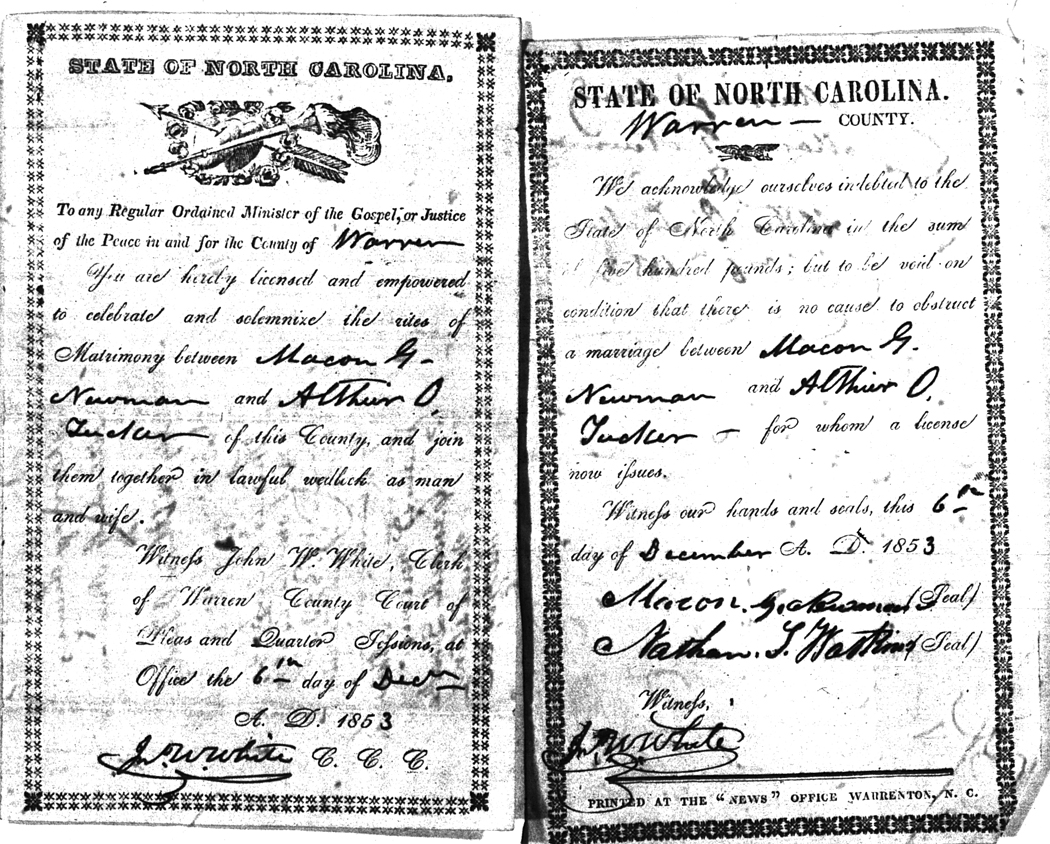 STATE OF NORTH CAROLINA.
To any Regular Ordained Minister of the Gospel, or Justice
of the Peace in and for the County of Warren
You are hereby licensed and empowered
to celebrate and solemnize the rites of
Matrimony between Macon G.
Newman and Althier O.
Tucker of this County, and join
them together in lawful wedlock as man
and wife.
Witness John W. White, Clerk
of Warren County Court of
Pleas and Quarter Sessions, at
Office the 6th day of Decem
A. D. 1853
Jno. W. White C. C. C.
STATE OF NORTH CAROLINA.
Warren — COUNTY.
We acknowledge ourselves indebted to the
State of North Carolina in the sum
of five hundred pounds; but to be void on
condition that there is no cause to obstruct
a marriage between Macon G.
Newman and Althier O.
Tucker — for whom a license
now issues.
Witness our hands and seals, this 6th
day of December A. D. 1853
Macon. G. Newman (Seal)
Nathan. S. Watkins (Seal)
Witness,
Jno. W. White
PRINTED AT THE "NEWS" OFFICE WARRENTON, N. C.